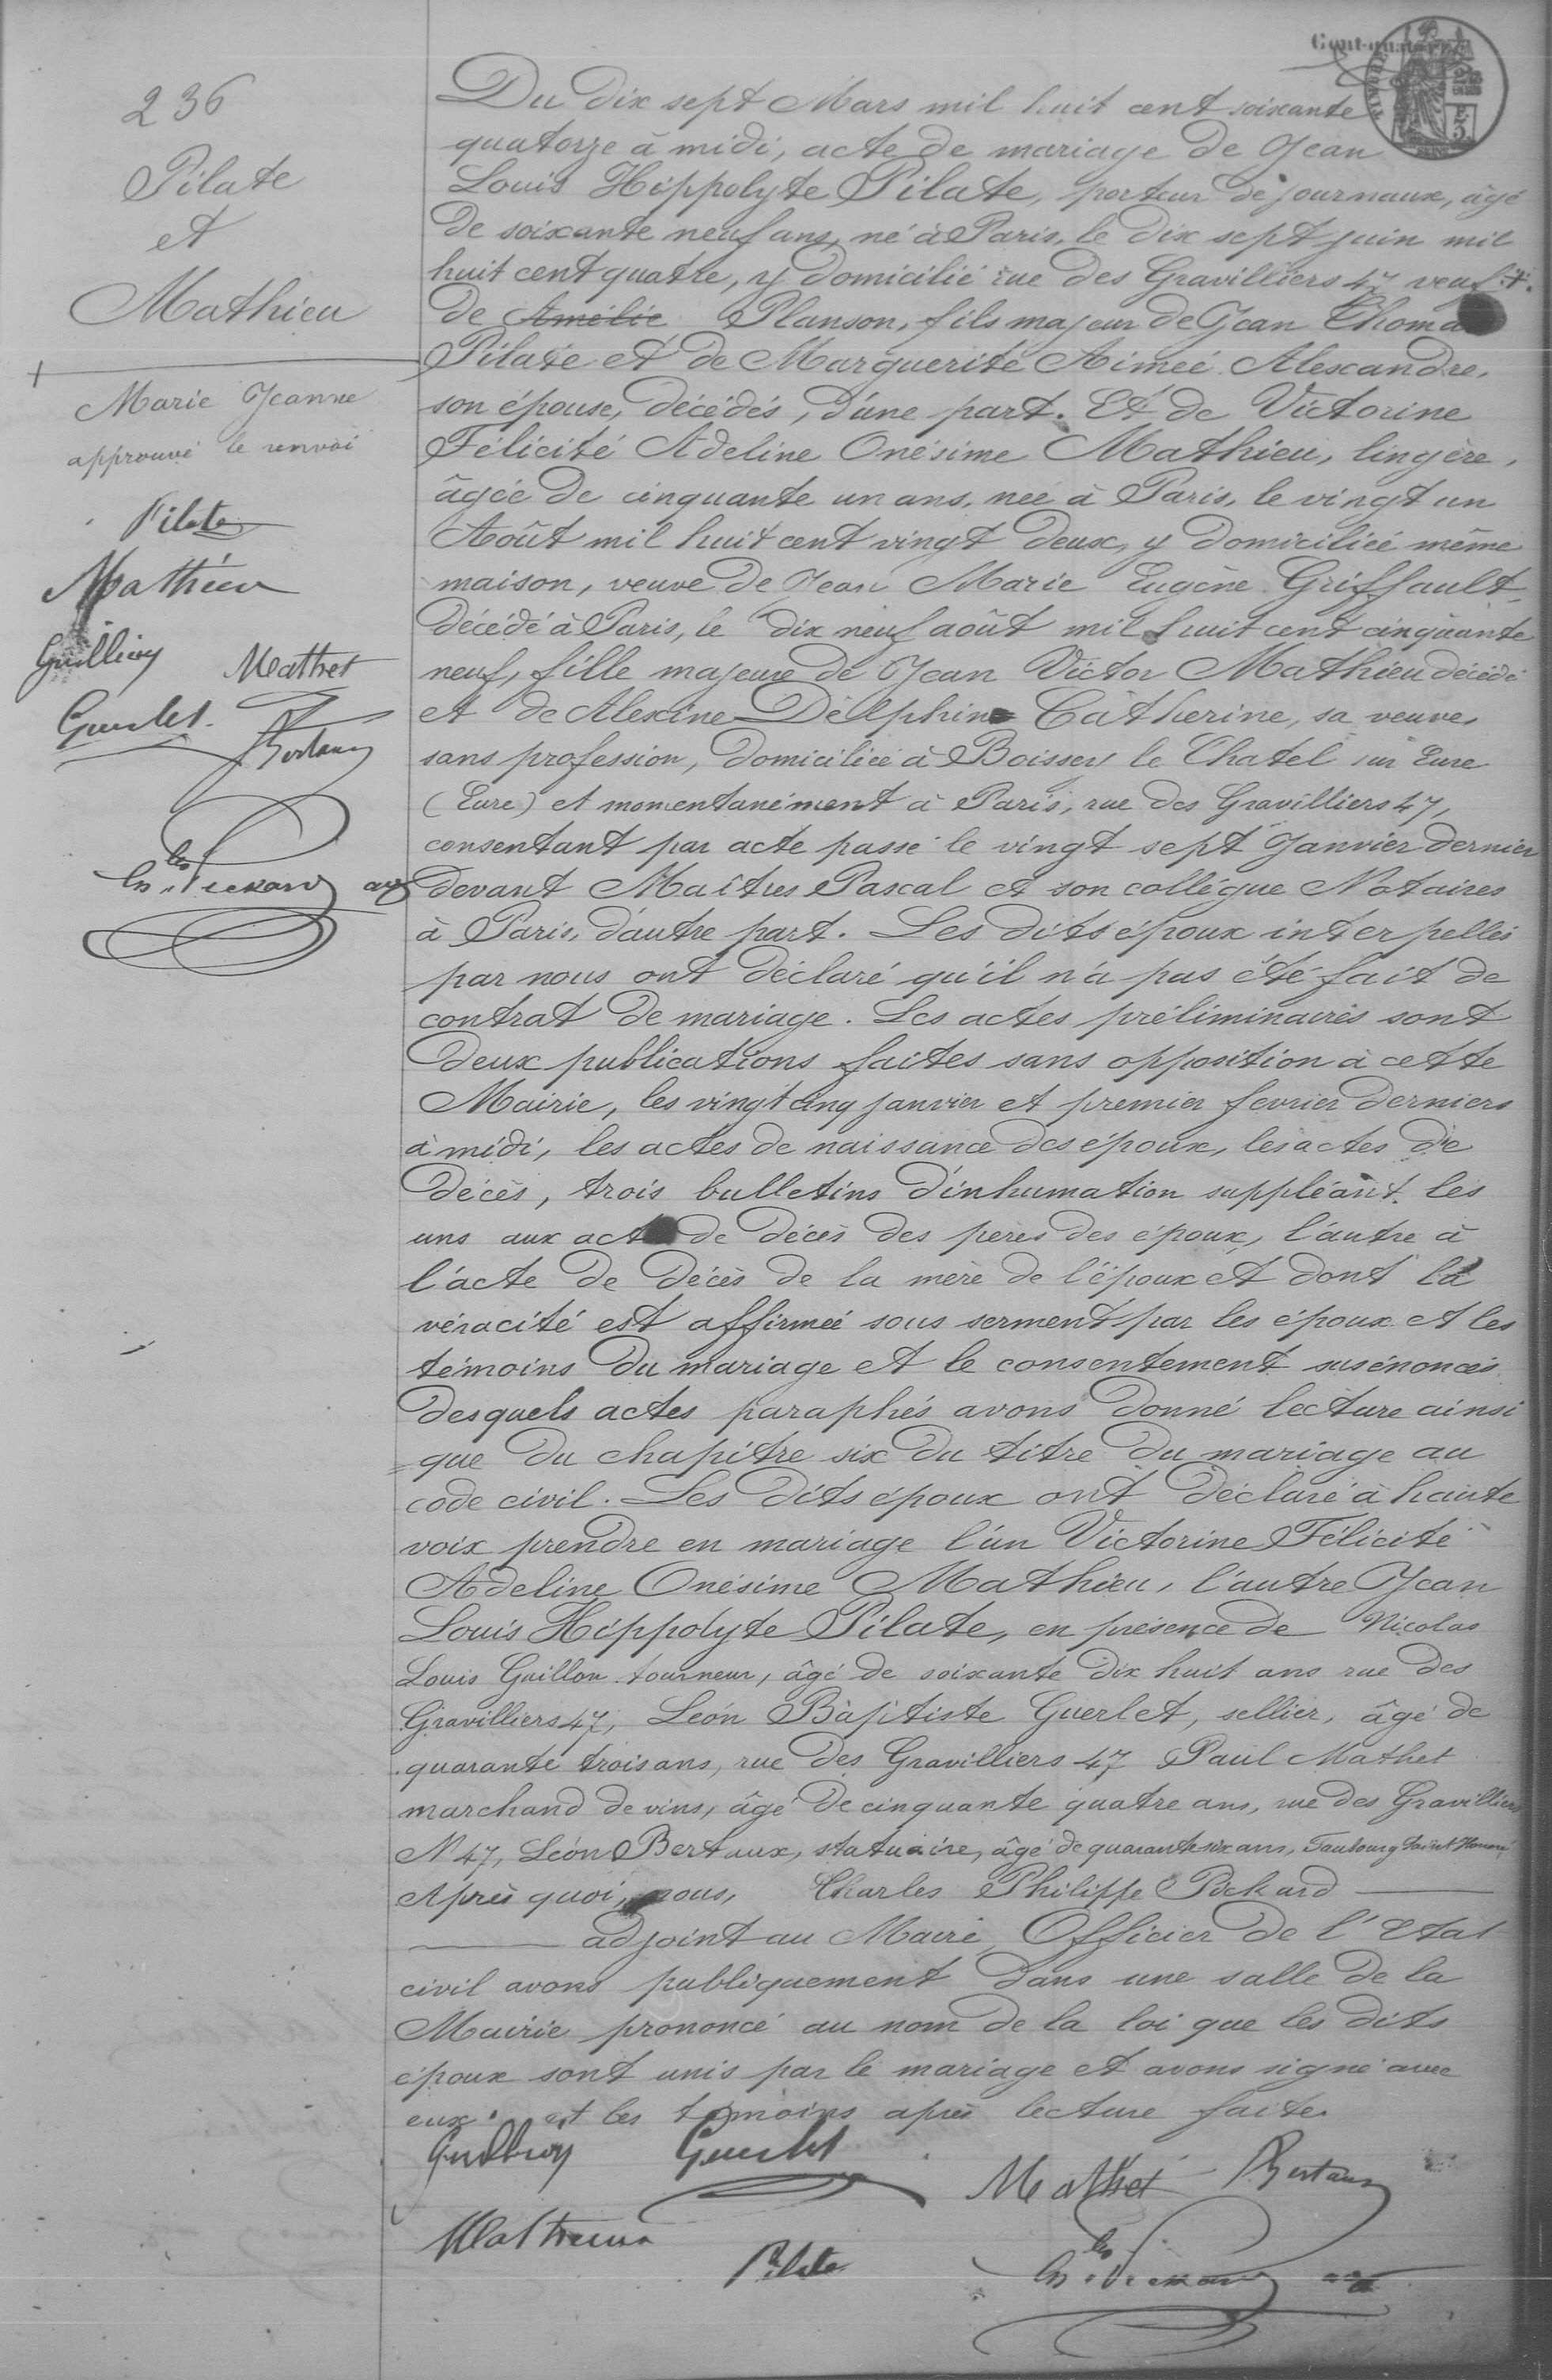 236
Pilate
et
Mathieu
Marie Jeanne
approuvé le renvoi
Pilate
Mathieu
Mathet
Guerlet
Bertaux
Du dix sept Mars mil huit cent soixante
quatorze à midi, acte de mariage de Jean
Louis Hippolyte Pilate, porteur de journaux, âgé
de soixante neuf ans, né à Paris, le dix sept juin mil
huit cent quatre, y domicilié rue des Gravilliers 47 veuf +.
de Amélie Planson, fils majeur de Jean Thomas
Pilate et de Marguerite Aimée Alexandre,
son épouse, décédés, d'une part. Et de Victorine
Félicité Adeline Onésime Mathieu, lingère,
âgée de cinquante un ans, née à Paris, le vingt un
Août mil huit cent vingt deux, y domiciliée même
maison, veuve de Jean Marie Eugène Griffault
décédé à Paris, le dix neuf août mil huit cent cinquante
neuf, fille majeure de Jean Victor Mathieu décédé
et de Alexine Delphine Catherine, sa veuve,
sans profession, domiciliée à Boissey le Chatel sur Eure
(Eure) et momentanément à Paris, rue des Gravilliers 47,
consentant par acte passé le vingt sept Janvier dernier
devant Maîtres Pascal et son collègue Notaires
à Paris, d'autre part. Les dits époux interpellés
par nous ont déclaré qu'il n'a pas été fait de
contrat de mariage. Les actes préliminaires sont
deux publications faites sans opposition à cette
Mairie, les vingt cinq janvier et premier fevrier derniers
à midi, les actes de naissance des époux, les actes de
décès, trois bulletins d'inhumation suppléant les
uns aux actes de décès des pères des époux, l'autre à
l'acte de décès de la mère de l'époux et dont la
véracité est affirmée sous serment par les époux et les
témoins du mariage et le consentement susénoncés
desquels actes paraphés avons donné lecture ainsi
que du chapitre six du titre du mariage au
code civil. Les dits époux ont déclaré à haute
voix prendre en mariage l'un Victorine Félicité
Adeline Onésime Mathieu, l'autre Jean
Louis Hippolyte Pilate, en présence de Nicolas
Louis Guillon tourneur, âgé de soixante dix huit ans rue des
Gravilliers 47, Léon Baptiste Guerlet, sellier, âgé de
quarante trois ans, rue des Gravilliers 47 Paul Mathet
marchand de vins, âgé de cinquante quatre ans, rue des Gravilliers
N 47, Léon Bertaux, statuaire, âgé de quarante six ans, Faubourg Saint Honoré
Après quoi, nous, Charles Philippe Pickard
adjoint au Maire Officier de l'Etat
civil avons publiquement dans une salle de la
Mairie prononcé au nom de la loi que les dits
époux sont unis par le mariage et avons signé avec
eux et les témoins après lecture faite.
Guerlet Mathet Bertaux
Mathieu
Pilate